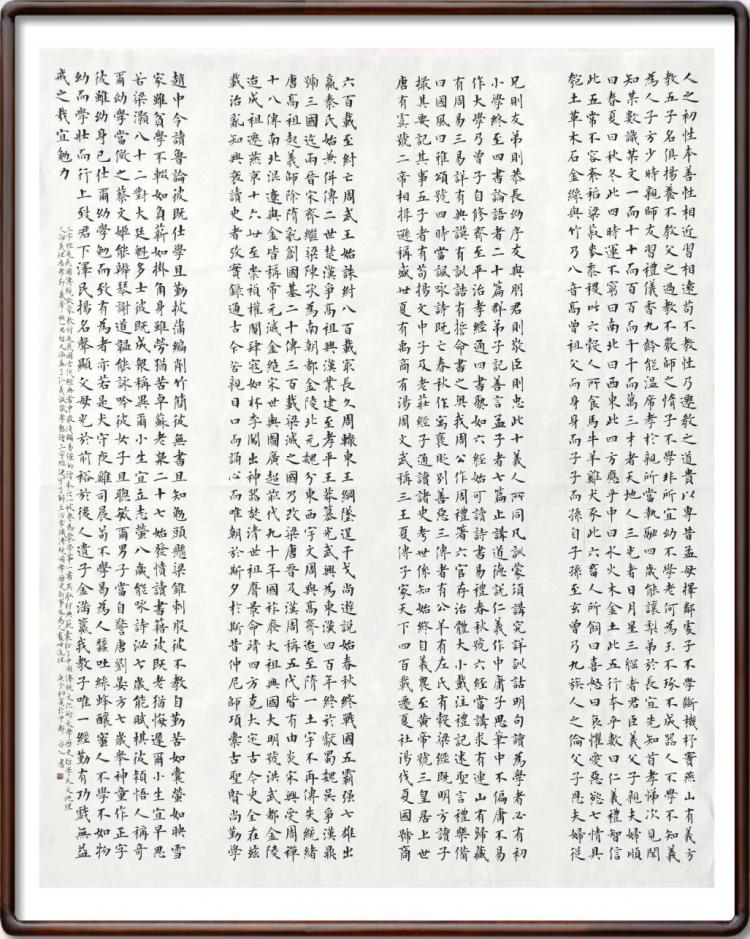 人之初性本善性相近習相遠苟不教性乃遷教之道貴以專昔孟母擇鄰處子不學斷機杼竇燕山有義方
教五子名俱揚養不教父之過教不嚴師之惰子不學非所宜幼不學老何為玉不琢不成器人不學不知義
為人子方少時親師友習禮儀香九齡能溫席孝於親所當執融四歲能讓梨弟於長宜先知首孝悌次見聞
知某數識某文一而十十而百百而千千而萬三才者天地人三光者日月星三綱者君臣義父子親夫婦順
曰春夏曰秋冬此四時運不窮曰南北曰西東此四方應乎中曰水火木金土此五行本乎數曰仁義禮智信
此五常不容紊稻粱菽麥黍稷此六穀人所食馬牛羊雞犬豕此六畜人所飼曰喜怒曰哀懼愛惡慾七情具
匏土革木石金絲與竹乃八音高曾祖父而身身而子子而孫自子孫至玄曾乃九族人之倫父子恩夫婦從
兄則友弟則恭長幼序友與朋君則敬臣則忠此十義人所同凡訓蒙須講究詳訓詁明句讀為學者必有初
小學終至四書論語者二十篇群弟子記善言孟子者七篇止講道德說仁義作中庸子思筆中不偏庸不易
作大學乃曾子自修齊至平治孝經通四書熟如六經始可讀詩書易禮春秋號六經當講求有連山有歸藏
有周易三易詳有典謨有訓誥有誓命書之奧我周公作周禮著六官存治體大小戴注禮記述聖言禮樂備
曰國風曰雅頌號四詩當諷詠詩既亡春秋作寓褒貶別善惡三傳者有公羊有左氏有穀梁經既明方讀子
撮其要記其事五子者有荀揚文中子及老莊經子通讀諸史考世係知始終自羲農至黃帝號三皇居上世
唐有虞號二帝相揖遜稱盛世夏有禹商有湯周文武稱三王夏傳子家天下四百載遷夏社湯伐夏國號商
六百載至紂亡周武王始誅紂八百載最長久周轍東王綱墜逞干戈尚遊說始春秋終戰國五霸强七雄出
嬴秦氏始兼併傳二世楚漢爭高祖興漢業建至孝平王莽篡光武興為東漢四百年終於獻蜀魏吳爭漢鼎
號三國迄兩晉宋齊繼梁陳承為南朝都金陵北元魏分東西宇文周興高齊迨至隋一土宇不再傳失統緒
唐高祖起義師除隋亂創國基二十傳三百載梁滅之國乃改梁唐晉及漢周稱五代皆有由炎宋興受周禪
十八傳南北混遼與金皆稱帝元滅金絕宋世輿圖廣超前代九十年國祚廢太祖興國大明號洪武都金陵
迨成祖遷燕京十六世至崇禎權閹肆寇如林李闖出神器焚清世祖膺景命靖四方克大定古今史全在茲
載治亂知興衰讀史者考實錄通古今若親目口而誦心而唯朝於斯夕於斯昔仲尼師項橐古聖賢尚勤學
趙中令讀魯論彼既仕學且勤披蒲編削竹簡彼無書且知勉頭懸梁錐刺股彼不教自勤苦如囊螢如映雪
家雖貧學不輟如負薪如掛角身雖勞猶苦卓蘇老泉二十七始發憤讀書籍彼既老猶悔遲爾小生宜早思
若梁灝八十二對大廷魁多士彼既成眾稱異爾小生宜立志瑩八歲能詠詩泌七歲能賦棋彼穎悟人稱奇
爾幼學當傚之蔡文姬能辨琴謝道韞能詠吟彼女子且聰敏爾男子當自警唐劉晏方七歲舉神童作正字
彼雖幼身已仕爾幼學勉而致有為者亦若是犬守夜雞司晨苟不學曷為人蠶吐絲蜂釀蜜人不學不如物
幼而學壯而行上致君下澤民揚名聲顯父母光於前裕於後人遺子金滿籯我教子唯一經勤有功戲無益
戒之哉宜勉力